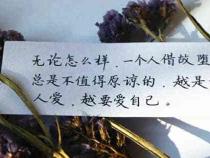 无论怎么样，一个人借故堕
总是不值得原谅的，越是
人爱，越要爱自己。